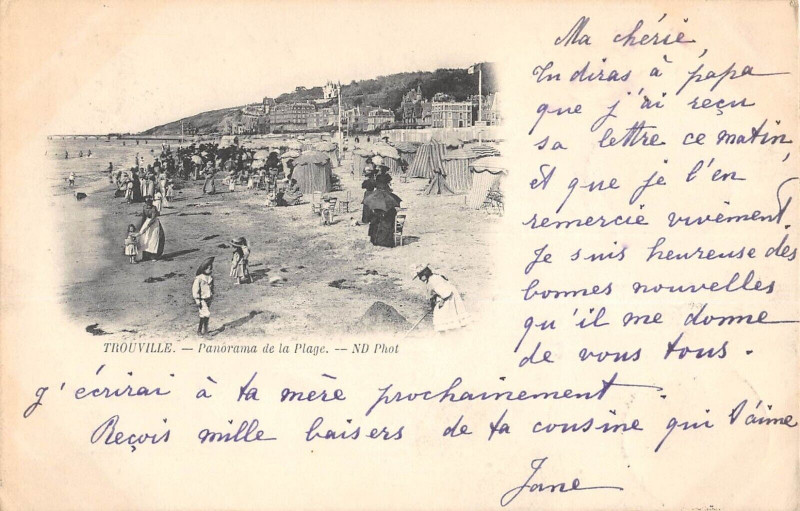 Ma chérie,
Tu diras à papa
que j'ai reçu
sa lettre ce matin,
et que je l'en
remercie vivement.
Je suis heureuse des
bonnes nouvelles
qu'il me donne
de vous tous.
TROUVILLE. — Panorama de la Plage. — ND Phot
J'écrirai à ta mère prochainement.
Reçois mille baisers de ta cousine qui t'aime
Jane